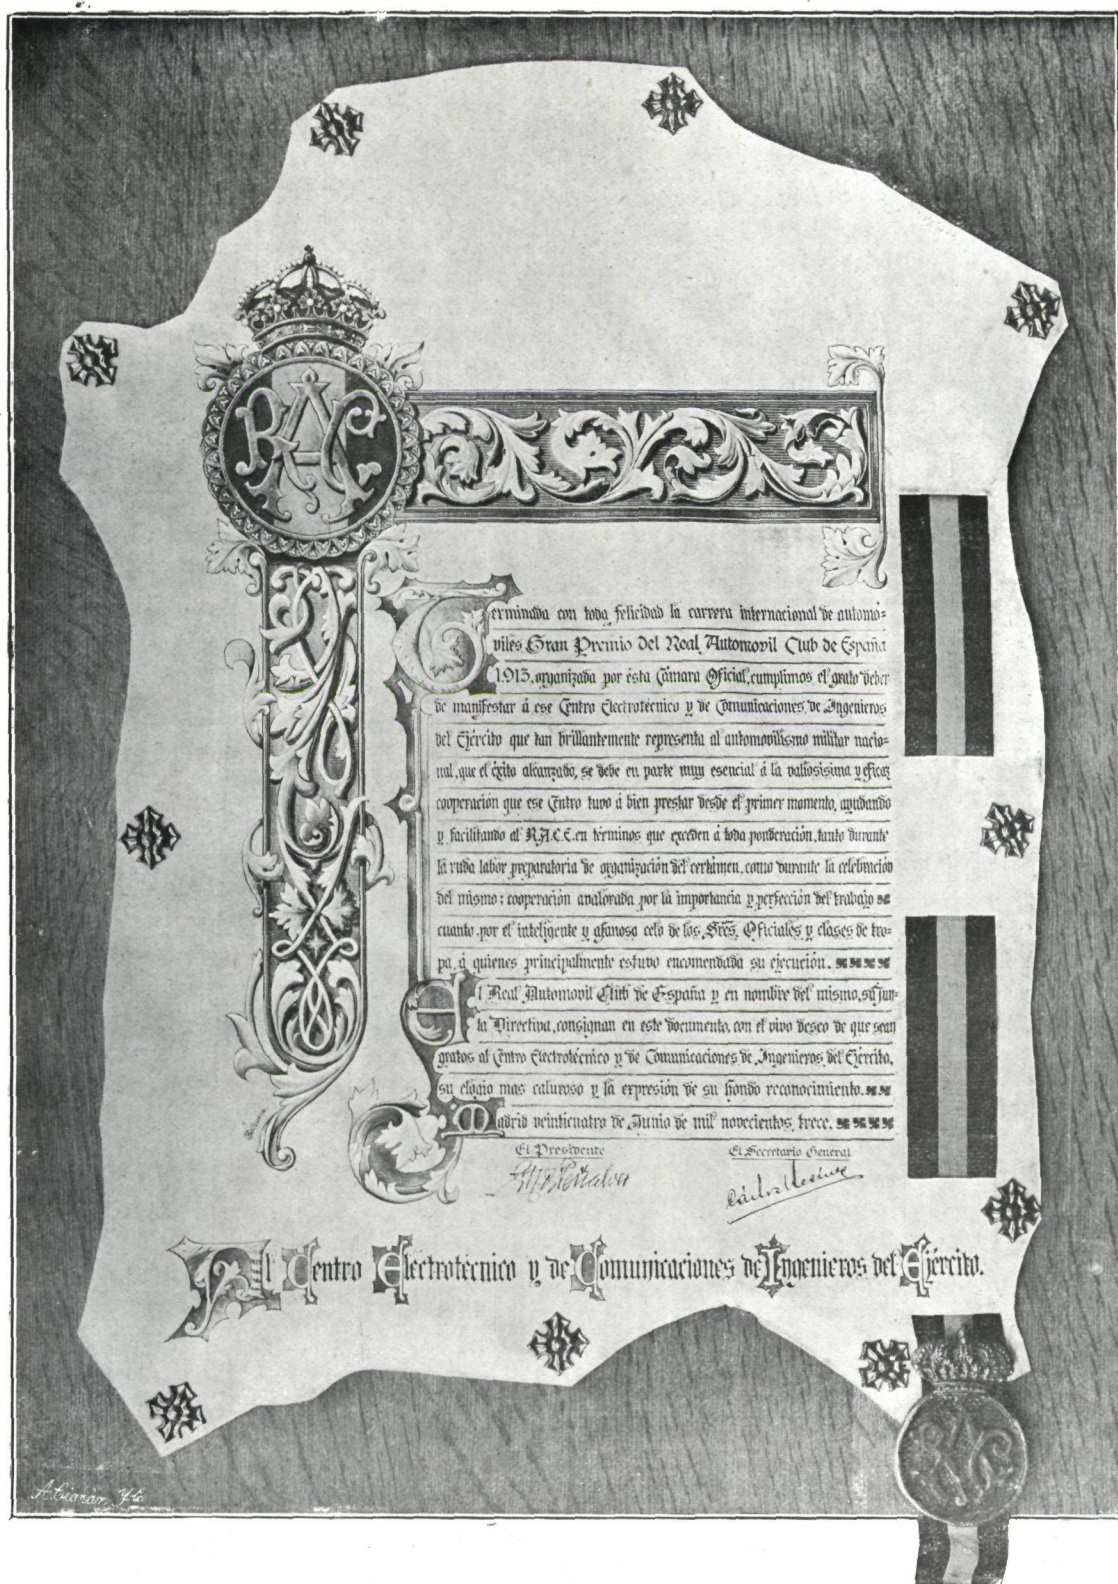 RAC
Terminada con toda felicidad la carrera internacional de automó=
viles Gran Premio del Real Automovil Club de España
1.913, organizada por ésta Cámara Oficial, cumplimos el grato deber
de manifestar á ese Centro Electrotécnico y de Comunicaciones de Ingenieros
del Ejército que tan brillantemente representa al automovilismo militar nacio=
nal, que el éxito alcanzado, se debe en parte muy esencial á la valiosisima y eficaz
cooperación que ese Centro tuvo á bien prestar desde el primer momento, ayudando
y facilitando al R.A.C.E. en términos que exceden á toda ponderación, tanto durante
la ruda labor preparatoria de organización del certámen, como durante la celebración
del mismo; cooperación avalorada por la importancia y perfección del trabajo
cuanto por el inteligente y afanoso celo de los Sres. Oficiales y clases de tro=
pa, á quienes principalmente estuvo encomendada su ejecución.
El Real Automovil Club de España y en nombre del mismo, su Jun=
ta Directiva, consignan en este documento, con el vivo deseo de que sean
gratos al Centro Electrotécnico y de Comunicaciones de Ingenieros del Ejército,
su elogio mas caluroso y la expresión de su hondo reconocimiento.
Madrid veinticuatro de Junio de mil novecientos trece.
El Presidente
El Secretario General
Carlos Resines
Al Centro Electrotécnico y de Comunicaciones de Ingenieros del Ejército.
RAC